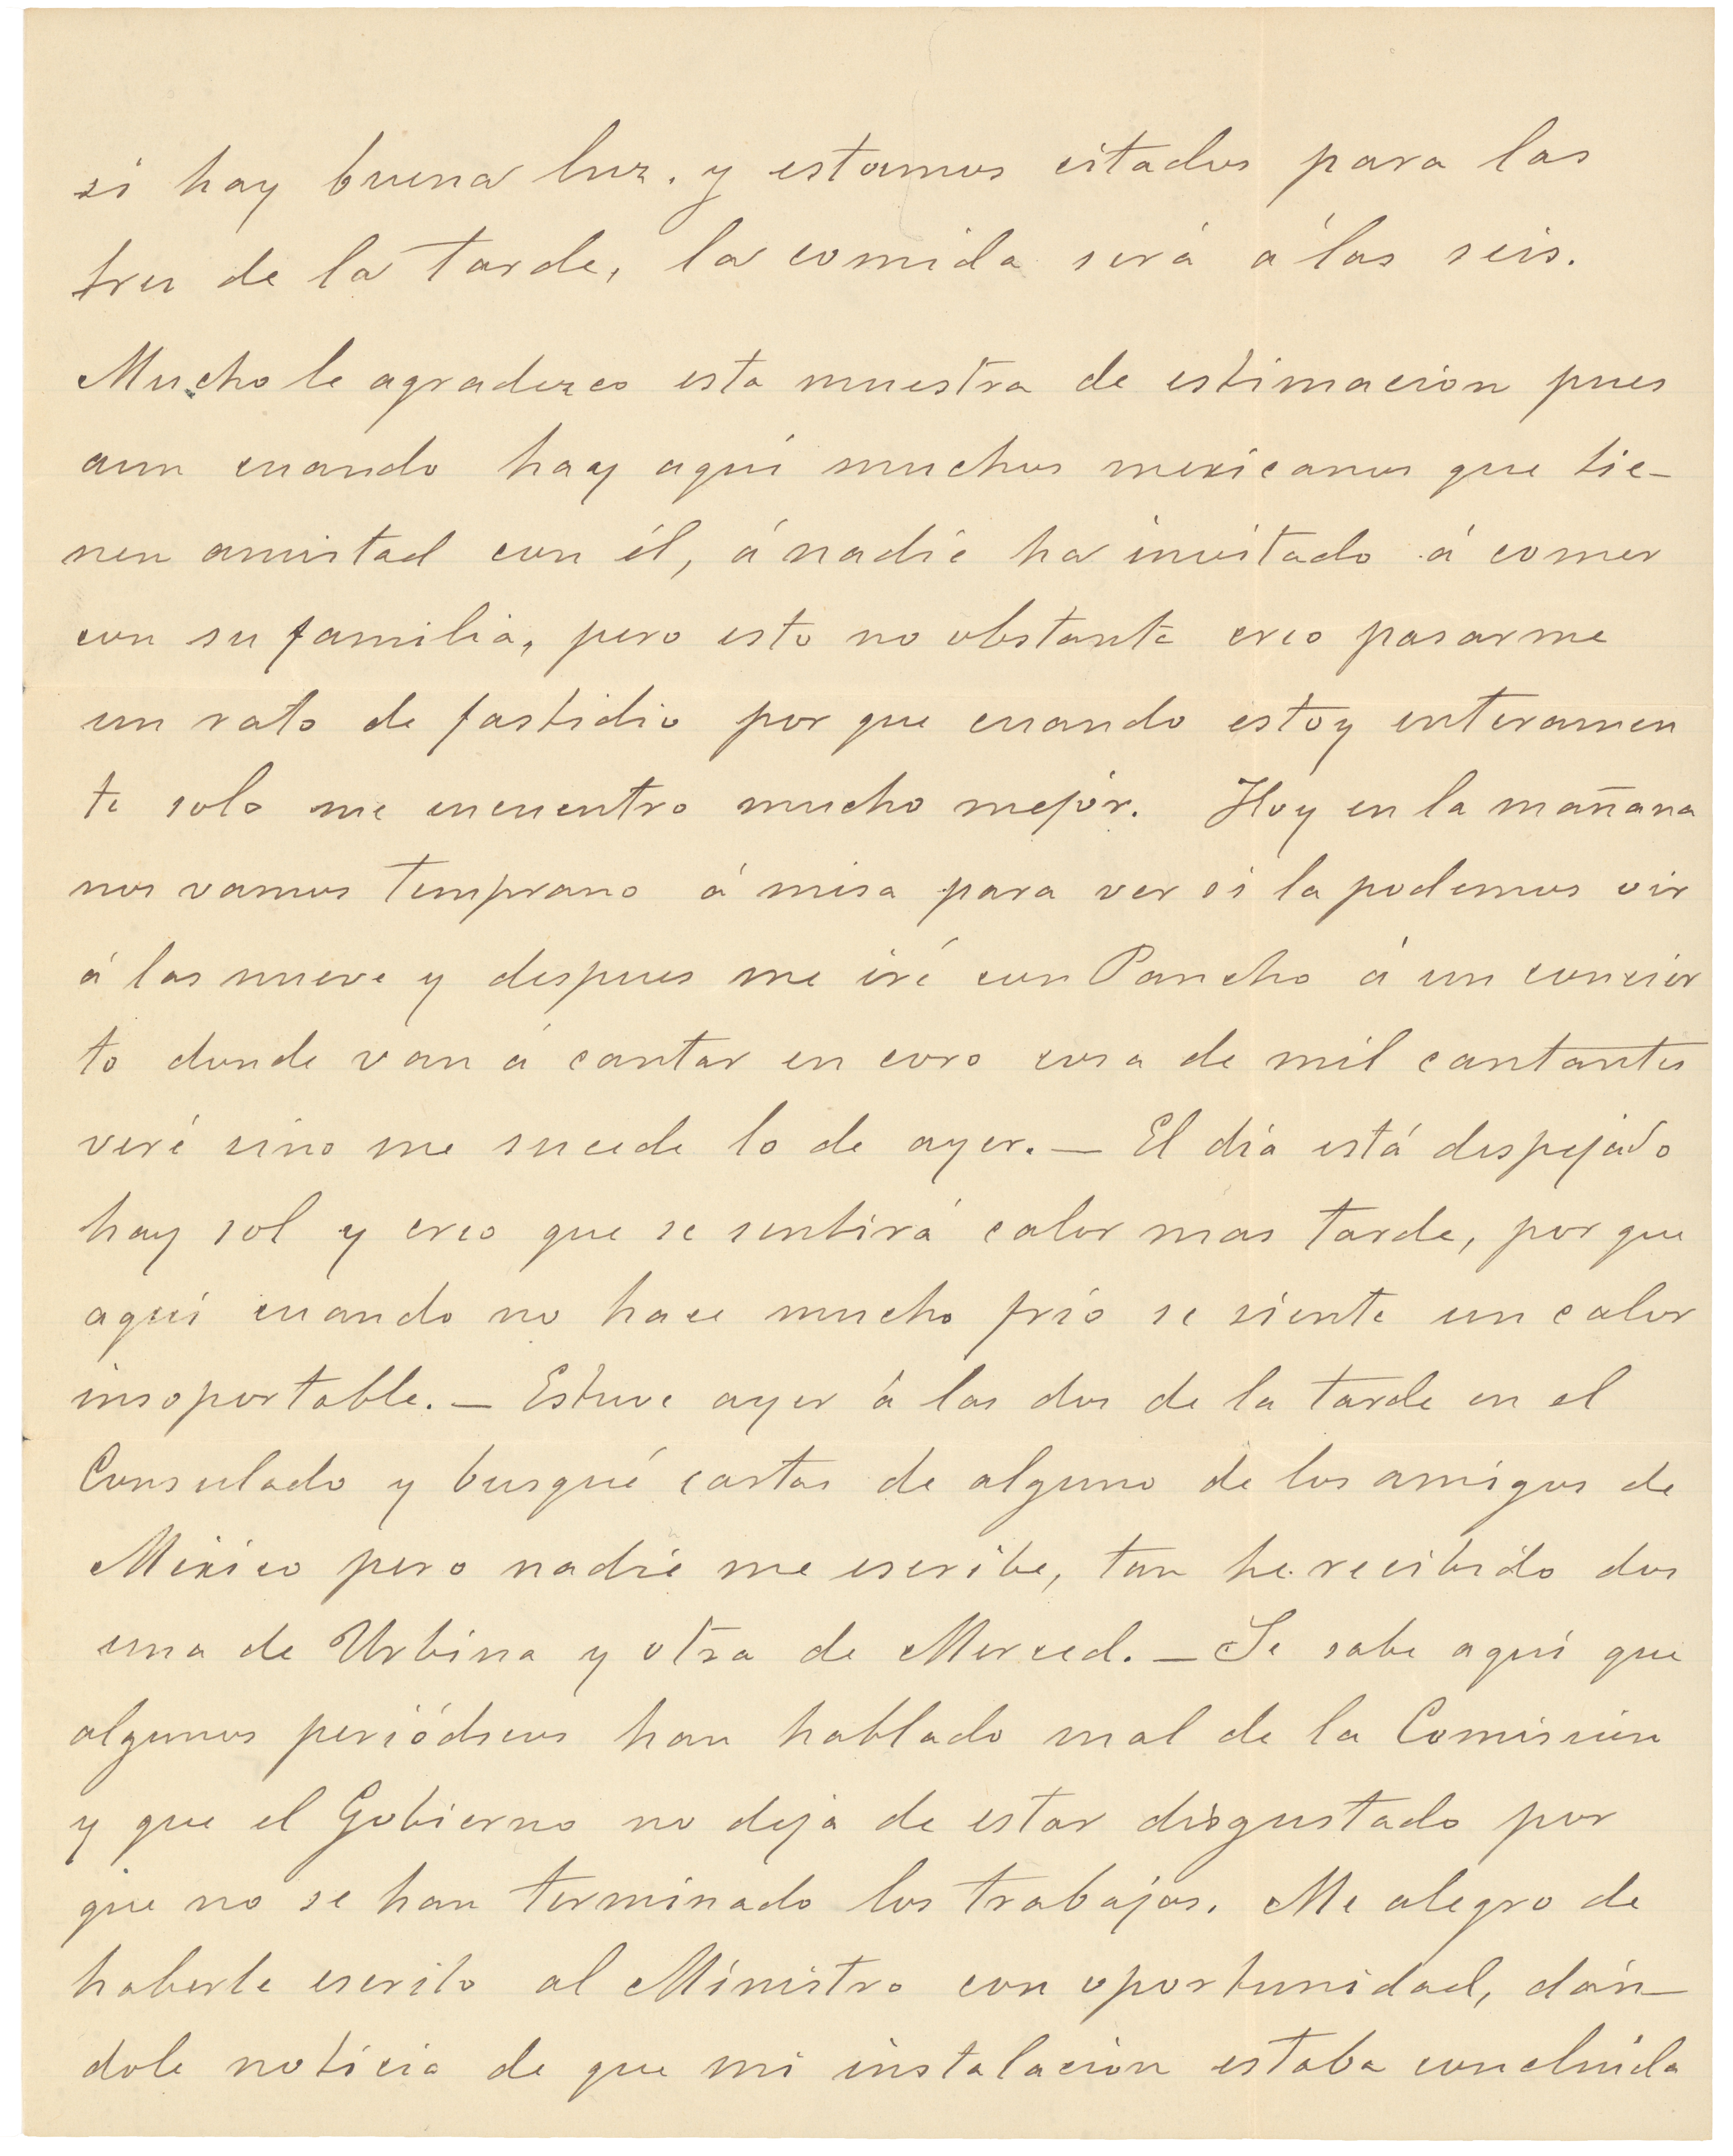 si hay buena luz. y estamos citados para las
tres de la tarde, la comida será á las seis.
Mucho le agradezco esta muestra de estimacion pues
aun cuando hay aquí muchos mexicanos que tie-
nen amistad con él, á nadie ha invitado á comer
con su familia, pero esto no obstante creo pasarme
un rato de fastidio por que cuando estoy enteramen
te solo me encuentro mucho mejor. Hoy en la mañana
nos vamos temprano á misa para ver si la podemos oir
á las nueve y despues me iré con Pancho á un concier
to donde van á cantar en coro cosa de mil cantantes
veré sino me sucede lo de ayer. — El día está despejado
hay sol y creo que se sentirá calor mas tarde, por que
aquí cuando no hace mucho frío se siente un calor
insoportable. — Estuve ayer á las dos de la tarde en el
Consulado y busqué cartas de alguno de los amigos de
México pero nadie me escribe, tan he recibido dos
una de Urbina y otra de Merced. — Se sabe aquí que
algunos periódicos han hablado mal de la Comision
y que el Gobierno no deja de estar disgustado por
que no se han terminado los trabajos. Me alegro de
haberle escrito al Ministro con oportunidad, dán-
dole noticia de que mi instalacion estaba concluida